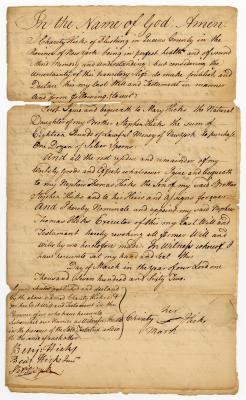 In the Name of God Amen.
I Charity Hicks of Flushing in Queens County in the
Province of New York being in perfect health and of sound
Mind Memory and understanding but considering the
Uncertainty of this transitory Life to make publish and
Declare this my last Will and Testament in manner
And form following Namely
First I give and bequeath to Mary Hicks the Natural
Daughter of my Brother Stephen Hicks the sum of
Eighteen Pounds of Lawful Money of New York to purchase
One Dozen of Silver Spoons
And all the rest residue and remainder of my
Worldly Goods and Effects whatsoever I give and bequeath
to my Nephew Thomas Hicks the Son of my said Brother
Stephen Hicks and to his Heirs and Assigns for ever
And I hereby Nominate and appoint my said Nephew
Thomas Hicks Executor of this my last Will and
Testament hereby revoking all former Will and
Wills by me heretofore made In Witness whereof I
have hereunto set my hand and Seal this
Day of March in the year of our Lord one
Thousand Seven hundred and Sixty Two
Signed Sealed published and declared
by the above named Charity Hicks as
her last Will and Testament in the
presence of us who have hereunto
Subscribed our Names as Witnesses thereto
in the presence of the said Testatrix and in
the view of each other
her
Charity Hicks
Mark
Benj Hicks
Benj Hicks Junr